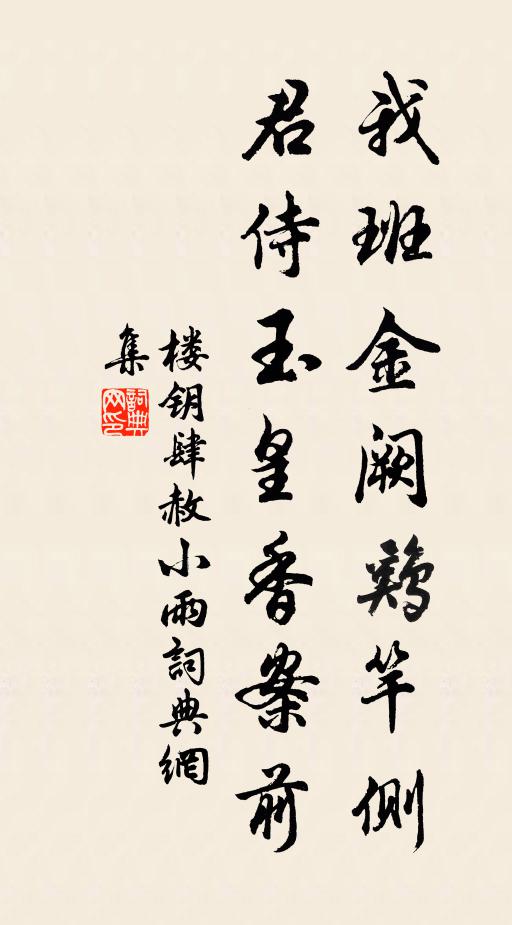 我班金阙鷄竿侧
君侍玉皇香案前
楼钥肆赦小雨詞典網
集
詞典
网印